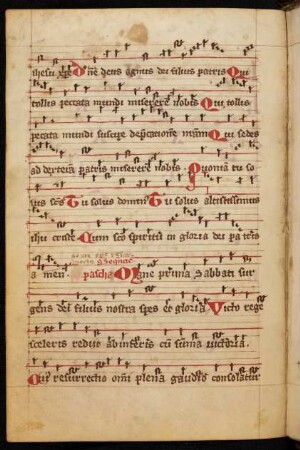 ihesu xpe Dne deus agnus dei filius patris Qui
tollis peccata mundi miserere nobis Qui tollis
peccata mundi suscipe depcationem nram Qui sedes
ad dexteram patris miserere nobis Quoniã tu so
lus scs Tu solus domin Tu solus altissimus
ihu criste Cum sco spiritu in gloria dei pa tris
a men pascha Magne prima Sabbati sur
gens dei filius nostra spes et gloria Victo rege
sceleris rediit ab inferis cũ suma victoria.
Cuius resurrectio omi plena gaudio consolatur